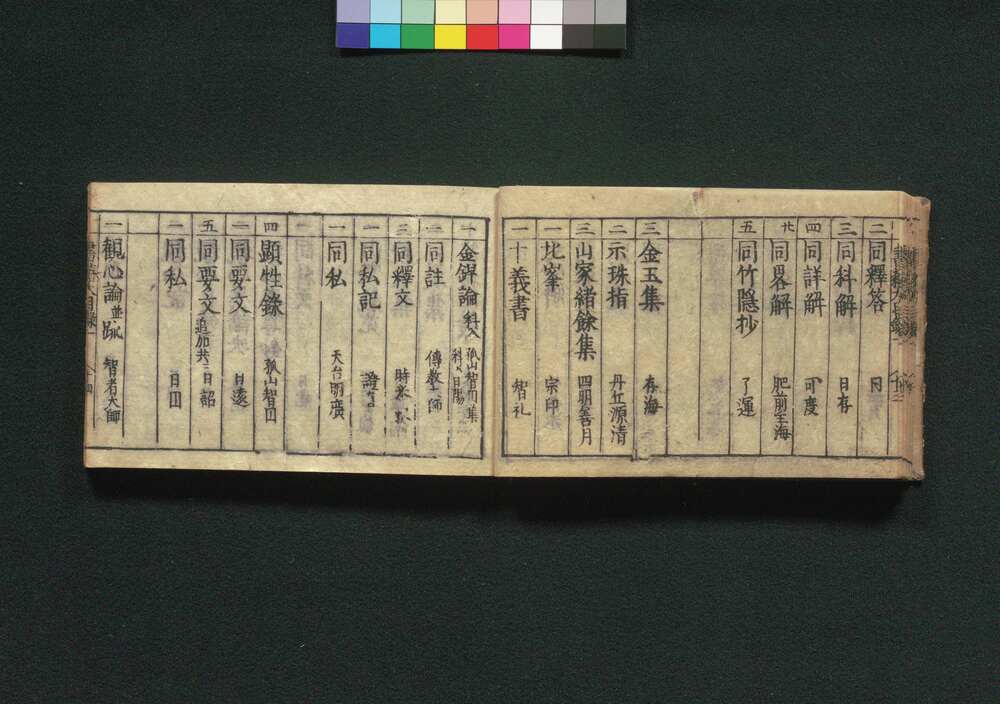 二 同釋荅 同
三 同科解 日存
四 同詳解 可度
廿 同畧解 肥前至海
五 同竹隠抄 了運
三 金玉集 存海
二 示珠指 丹丘源清
三 山家緒餘集 四明善月
一 北峯 宗印
一 十義書 智礼
一 金錍論 科入 孤山智円集
二 同註 傳教大師
三 同釋文 時挙
一 同私記 證真
一 同私 天台明廣
四 顕性録 孤山智円
二 同要文 日遠
五 同要文 追加共ニ 日韶
二 同私 日円
一 観心論並䟽 智者大師